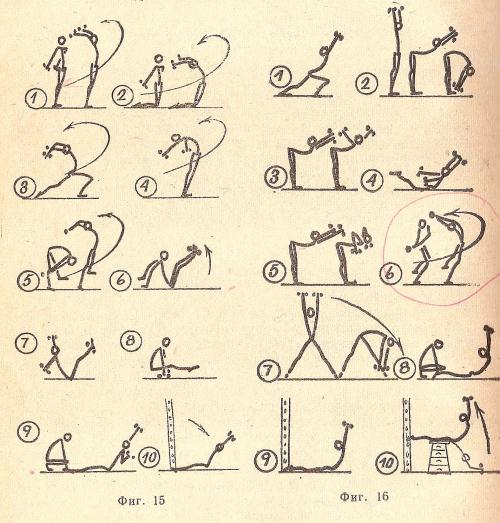 1 2 1 2
3 4 3 4
5 6 5 6
7 8 7 8
9 10 9 10
Фиг. 15 Фиг. 16